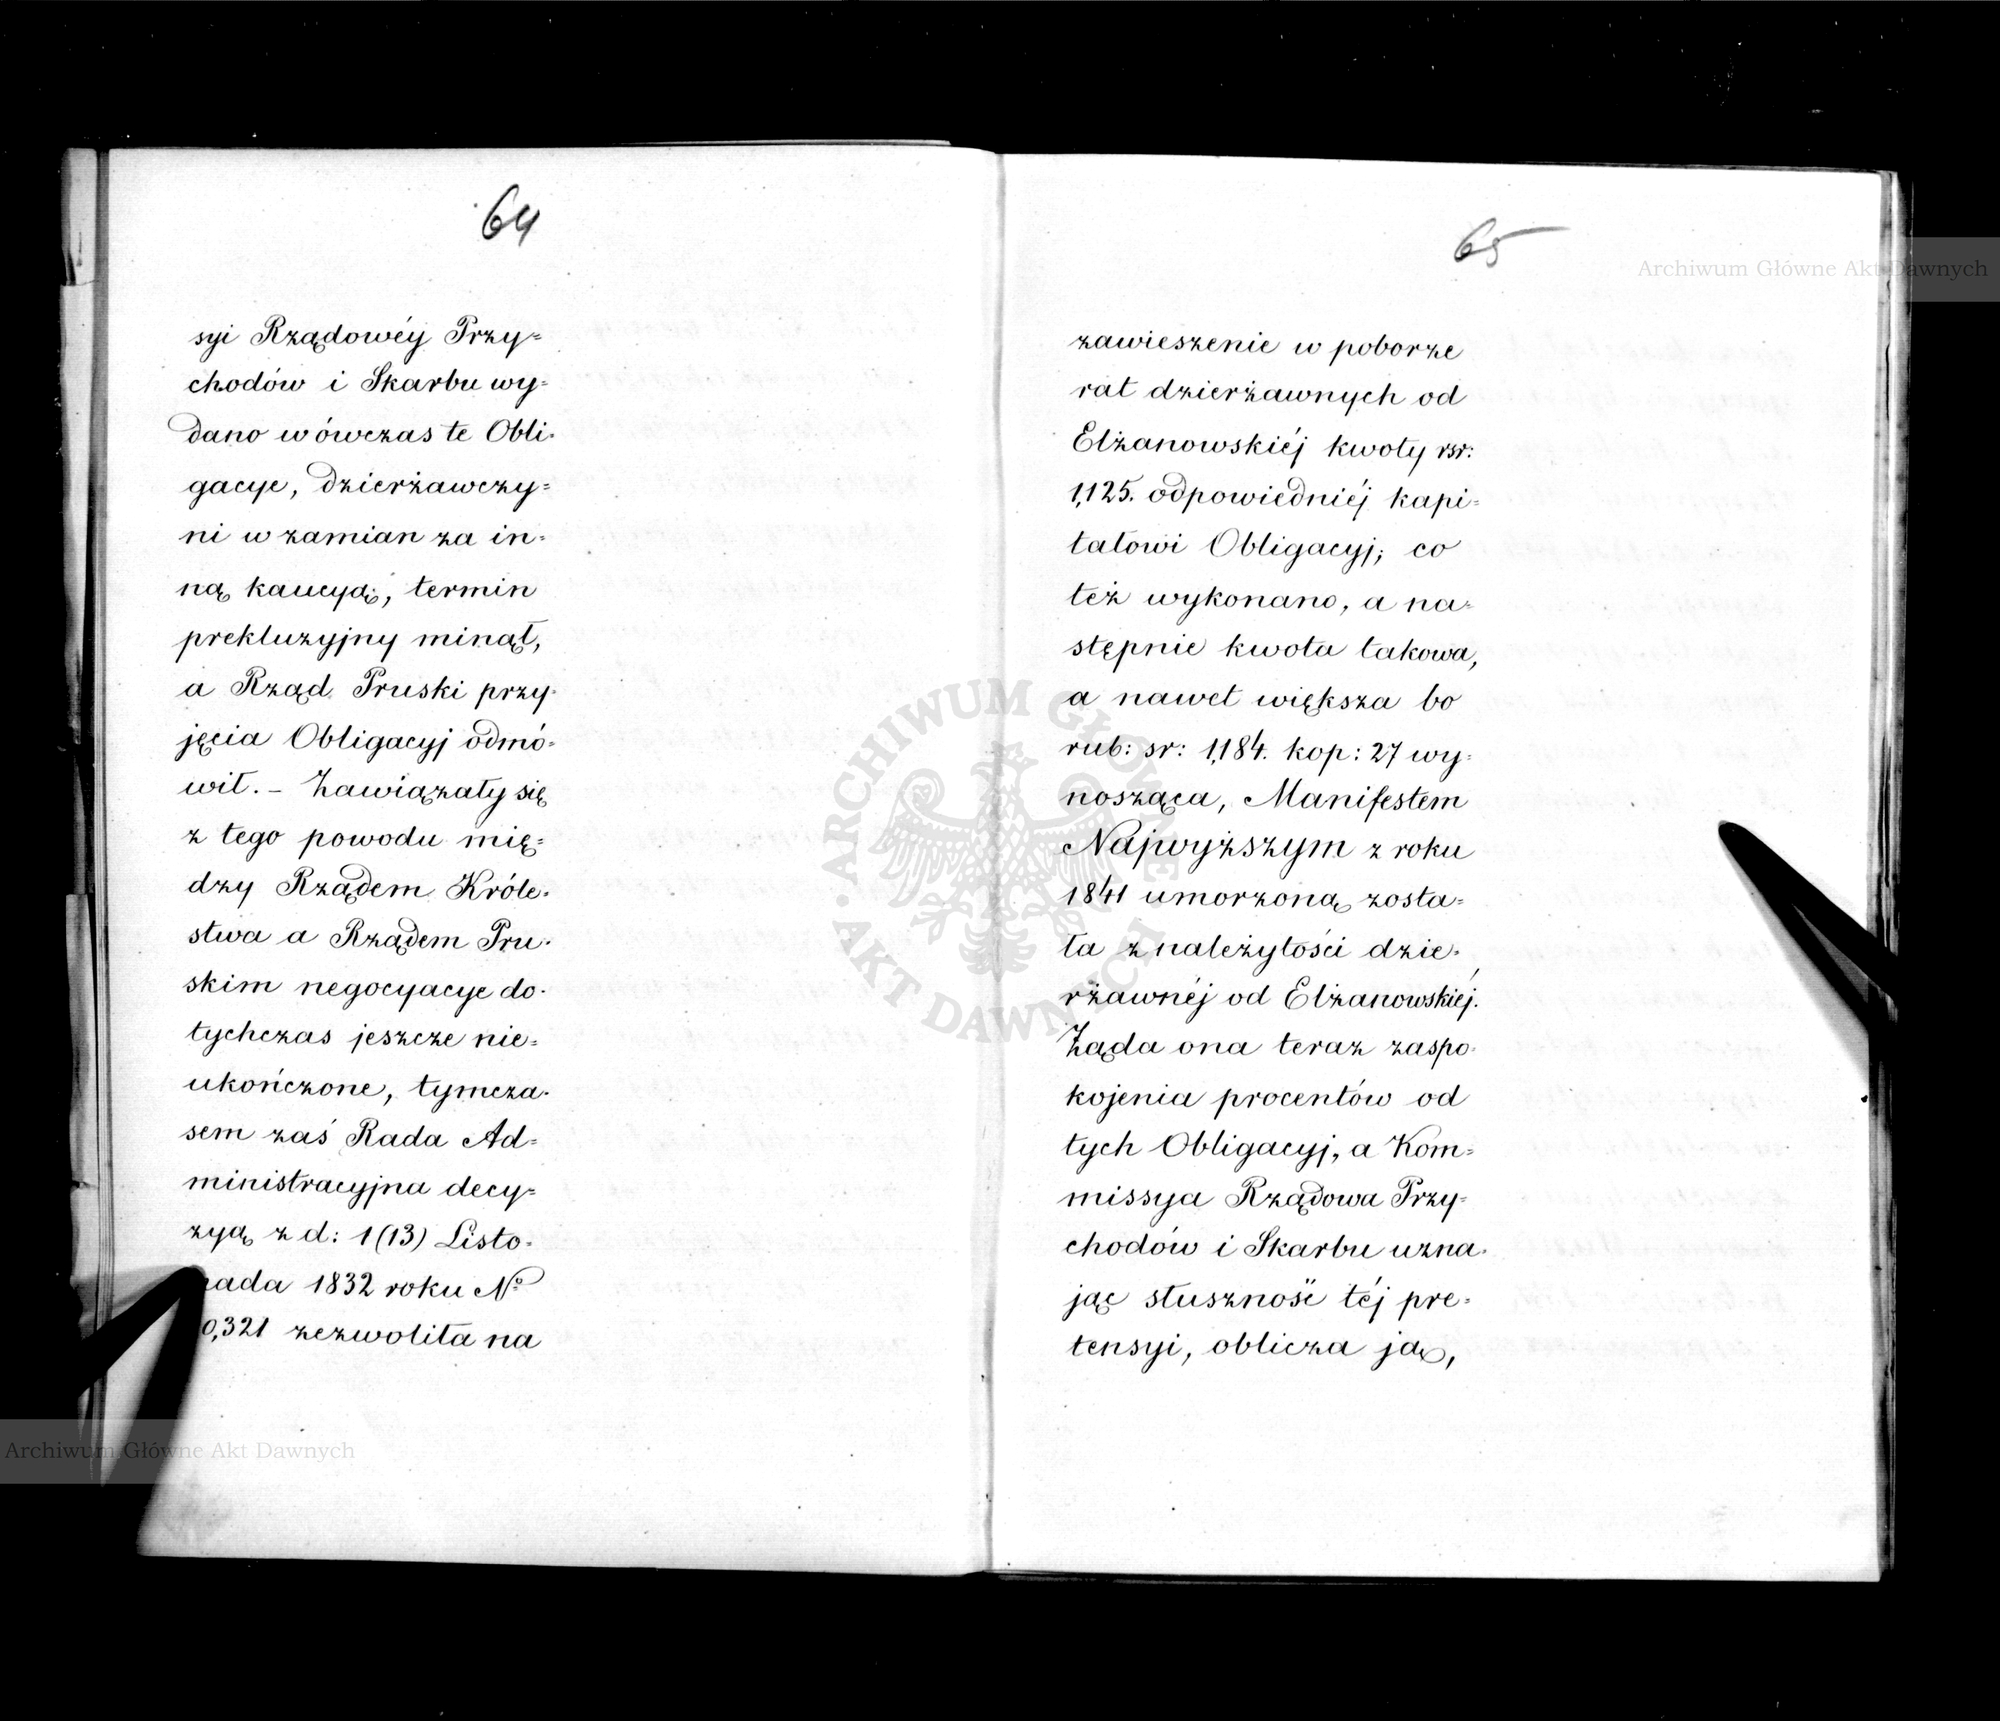 64
syi Rządowéy Przy=
chodów i Skarbu wy=
dano wówczas te Obli=
gacye, dzierżawczy=
ni w zamian za in=
ną kaucyą, termin
prekluzyjny minął,
a Rząd Pruski przy=
jęcia Obligacyj odmó=
wił. – Zawiązały się
z tego powodu mię=
dzy Rządem Króle=
stwa a Rządem Pru=
skim negocyacye do=
tychczas jeszcze nie=
ukończone, tymcza=
sem zaś Rada Ad=
ministracyjna decy=
zyą z d: 1 (13) Listo=
pada 1832 roku No
0,321 zezwoliła na
65
zawieszenie w poborze
rat dzierżawnych od
Elżanowskiéj kwoty rsr:
1,125. odpowiedniéj kapi=
tałowi Obligacyj; co
też wykonano, a na=
stępnie kwota takowa,
a nawet większa bo
rub: sr: 1,184. kop: 27 wy=
nosząca, Manifestem
Najwyższym z roku
1841 umorzoną zosta=
ła z należytości dzie=
rżawnéj od Elżanowskiéj.
Żąda ona teraz zaspo=
kojenia procentów od
tych Obligacyj, a Kom=
missya Rządowa Przy=
chodów i Skarbu uzna=
jąc słuszność téj pre=
tensyi, oblicza ją,
Archiwum Główne Akt Dawnych
Archiwum Główne Akt Dawnych
ARCHIWUM GŁÓWNE • AKT DAWNYCH •